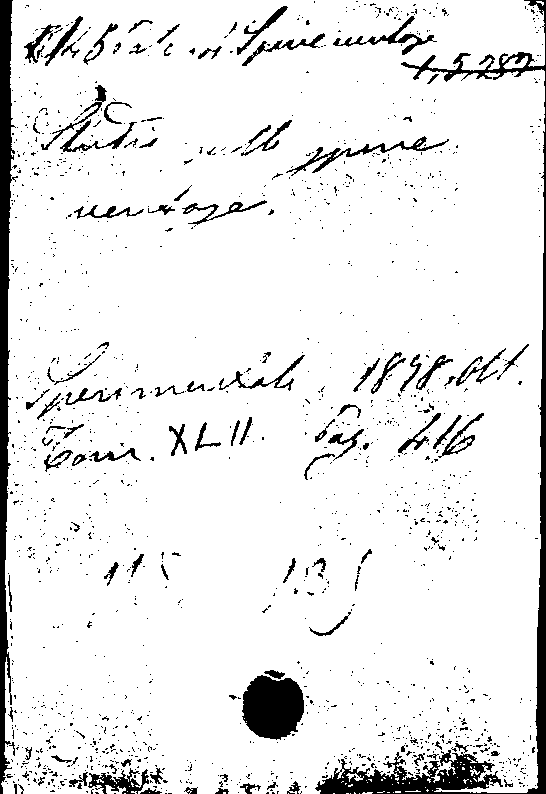 Spine ventose
1,5,287
Studii sulle spine
ventose.
Sperimentale. 1878. Ott.
Tom. XLII. Pag. 416
115 135